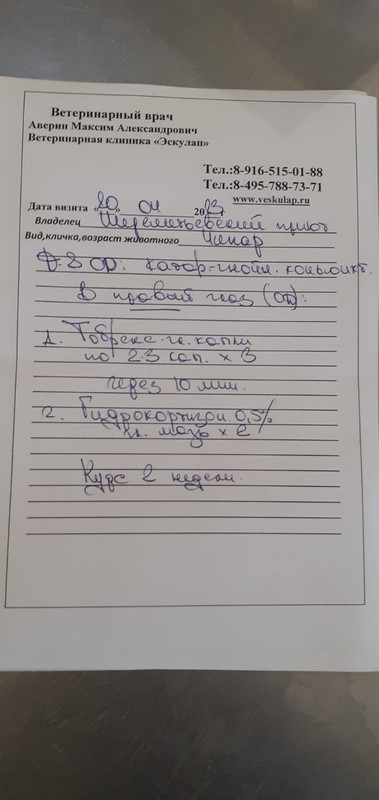 Ветеринарный врач
Аверин Максим Александрович
Ветеринарная клиника «Эскулап»
Тел.:8-916-515-01-88
Тел.:8-495-788-73-71
www.veskulap.ru
Дата визита «20» 04 2023
Владелец Шереметьевский приют
Вид,кличка,возраст животного Чинар
D-з OD: катар-гнойн. конъюнкт.
В правый глаз (OD):
1. Тобрекс гл. капли
по 2-3 кап. х 3
через 10 мин.
2. Гидрокортизон 0,5%
гл. мазь х 2
Курс 2 недели.